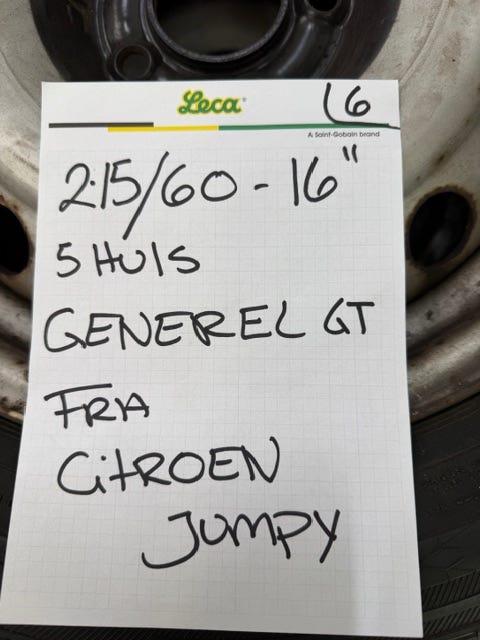 Leca
16
A Saint-Gobain brand
215/60 - 16"
5 HUlS
GENEREL GT
FRA
CiTROEN
JUMPY